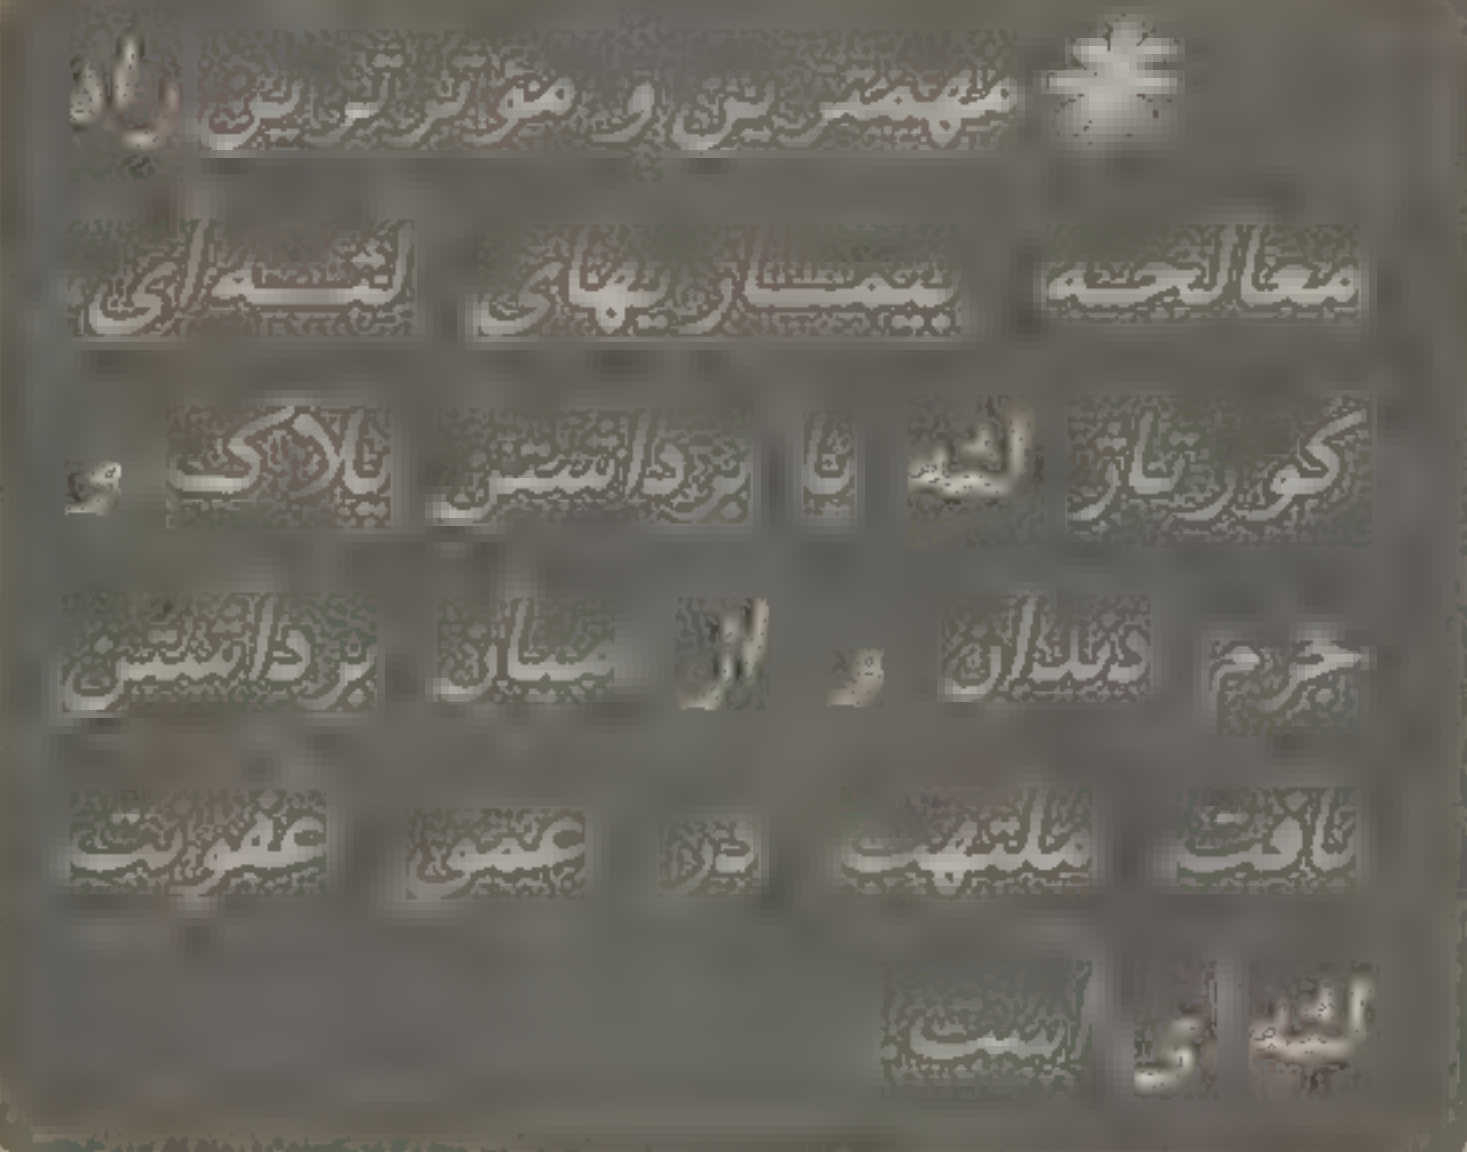 * مهمترین و موثرترین راه
معالجه بیماریهای لثه‌ای
کورتاژ لثه با برداشتن پلاک و
جرم دندان و از میان برداشتن
بافت ملتهب در عمق عفونت
لثه ی است